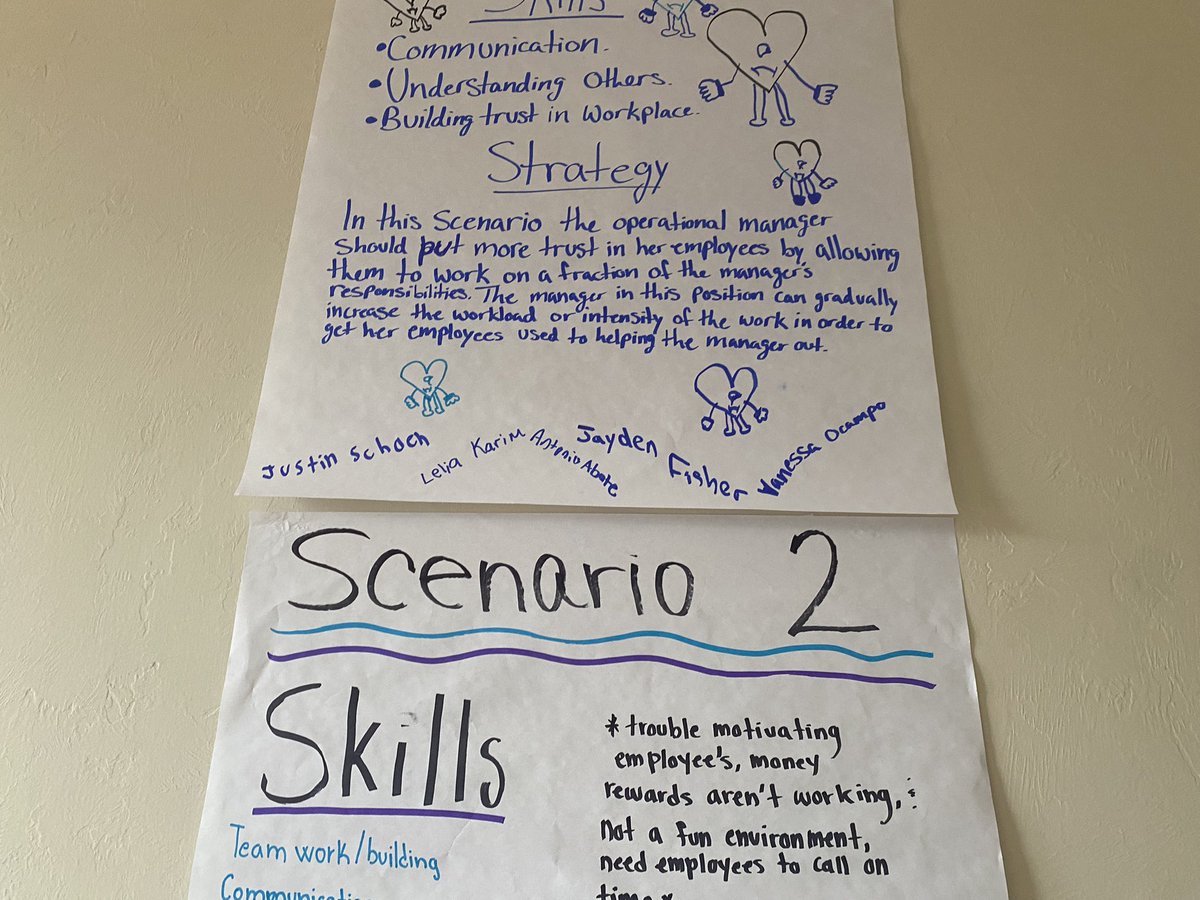 Skills
•Communication.
•Understanding Others.
•Building trust in Workplace.
Strategy
In this Scenario the operational manager
should put more trust in her employees by allowing
them to work on a fraction of the manager's
responsibilities. The manager in this position can gradually
increase the workload or intensity of the work in order to
get her employees used to helping the manager out.
Justin Schoch
Lelja Karim
Antonio Abate
Jayden Fisher
Vanessa Ocampo
Scenario 2
Skills
Team work/building
Communication
* trouble motivating
employee's, money
rewards aren't working, &
not a fun environment,
need employees to call on
time *